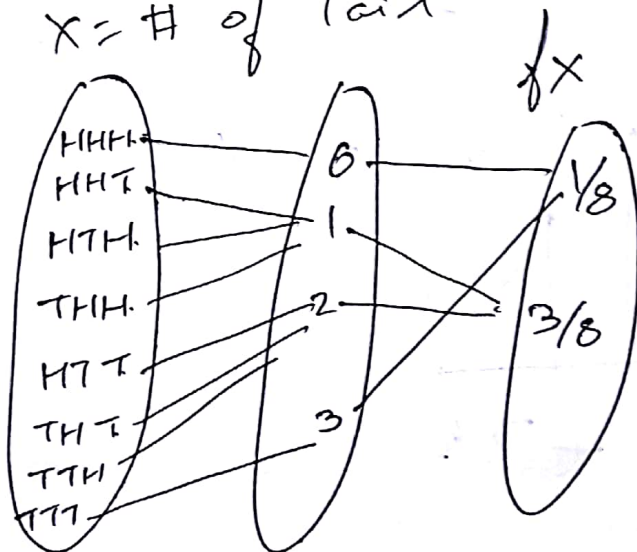 X = # of Tail
fx
HHH
HHT
HTH
THH
HTT
THT
TTH
TTT
0
1
2
3
1/8
3/8